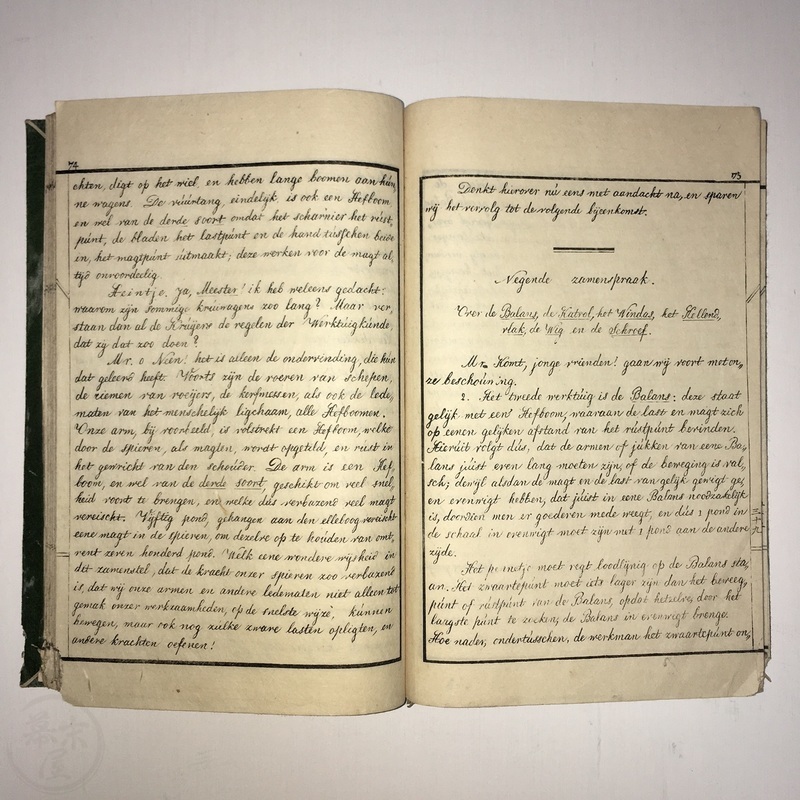 74
chten, digt op het wiel, en hebben lange boomen aan hún,
ne wagens. De vúúrtang, eindelijk is ook een Hefboom
en wel van de derde soort omdat het scharnier het rúst,
púnt, de bladen het lastpúnt en de hand tússchen beide
in, het magtpúnt úitmaakt; deze werken voor de magt al,
tijd onvoordeelig.
Heintje. Ja, Meester! ik heb weleens gedacht:
waarom zijn sommige krúiwagens zoo lang? Maar ver,
staan dan al de Krúijers de regelen der Werktúigkúnde,
dat zij dat zoo doen?
Mr. o Neen! het is alleen de ondervinding, die hún
dat geleerd heeft. Voorts zijn de roeren van schepen,
de riemen van roeijers, de kerfmessen, als ook de lede,
maten van het menschelijk ligchaam, alle Hefboomen.
Onze arm, bij voorbeeld, is volstrekt een Hefboom, welke
door de spieren, als magten, wordt opgetild, en rúst in
het gewricht van den schoúder. De arm is een Hef,
boom, en wel van de derde soort, geschikt om veel snel,
heid voort te brengen, en welke dús verbazend veel magt
vereischt. Vijftig pond, gehangen aan den elleboog vereischt
eene magt in de spieren, om dezelve op te houden van omt,
rent zeven honderd pond. Welk eene wondere wijsheid in
dit zamenstel, dat de kracht onzer spieren zoo verbazend
is, dat wij onze armen en andere ledematen niet alleen tot
gemak onzer werkzaamheden, op de snelste wijze, kúnnen
bewegen, maar ook nog zúlke zware lasten opligten, en
andere krachten oefenen!
73
Denkt hierover nú eens met aandacht na, en sparen
wij het vervolg tot de volgende bijeenkomst.
Negende zamenspraak.
Over de Balans, de Katrol, het Windas, het Hellend,
vlak, de Wig en de Schroef.
Mr. Komt, jonge vrienden! gaan wij voort met on,
ze beschoúwing.
2. Het tweede werktúig is de Balans: deze staat
gelijk met een' Hefboom, waaraan de last en magt zich
op eenen gelijken afstand van het rústpúnt bevinden.
Hierúit volgt dús, dat de armen of júkken van eene Ba,
lans júist even lang moeten zijn, of de beweging is val,
sch; dewijl alsdan de magt en de last van gelijk gewigt ge,
en evenwigt hebben, dat júist in eene Balans noodzakelijk
is, doordien men er goederen mede weegt, en dús 1 pond in
de schaal in evenwigt moet zijn met 1 pond aan de andere
zijde.
Het pennetje moet regt loodlijnig op de Balans sta,
an. Het zwaartepúnt moet iets lager zijn dan het beweeg,
púnt of rústpúnt van de Balans, opdat hetzelve, door het
laagste púnt te zoeken, de Balans in evenwigt brenge.
Hoe nader, ondertússchen, de werkman het zwaartepúnt on,
三十九
幕末屋